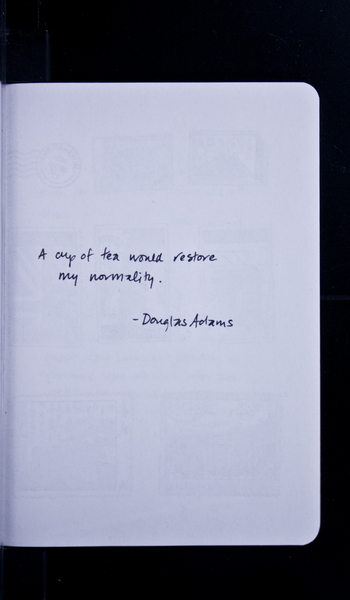 A cup of tea would restore
my normality.
- Douglas Adams